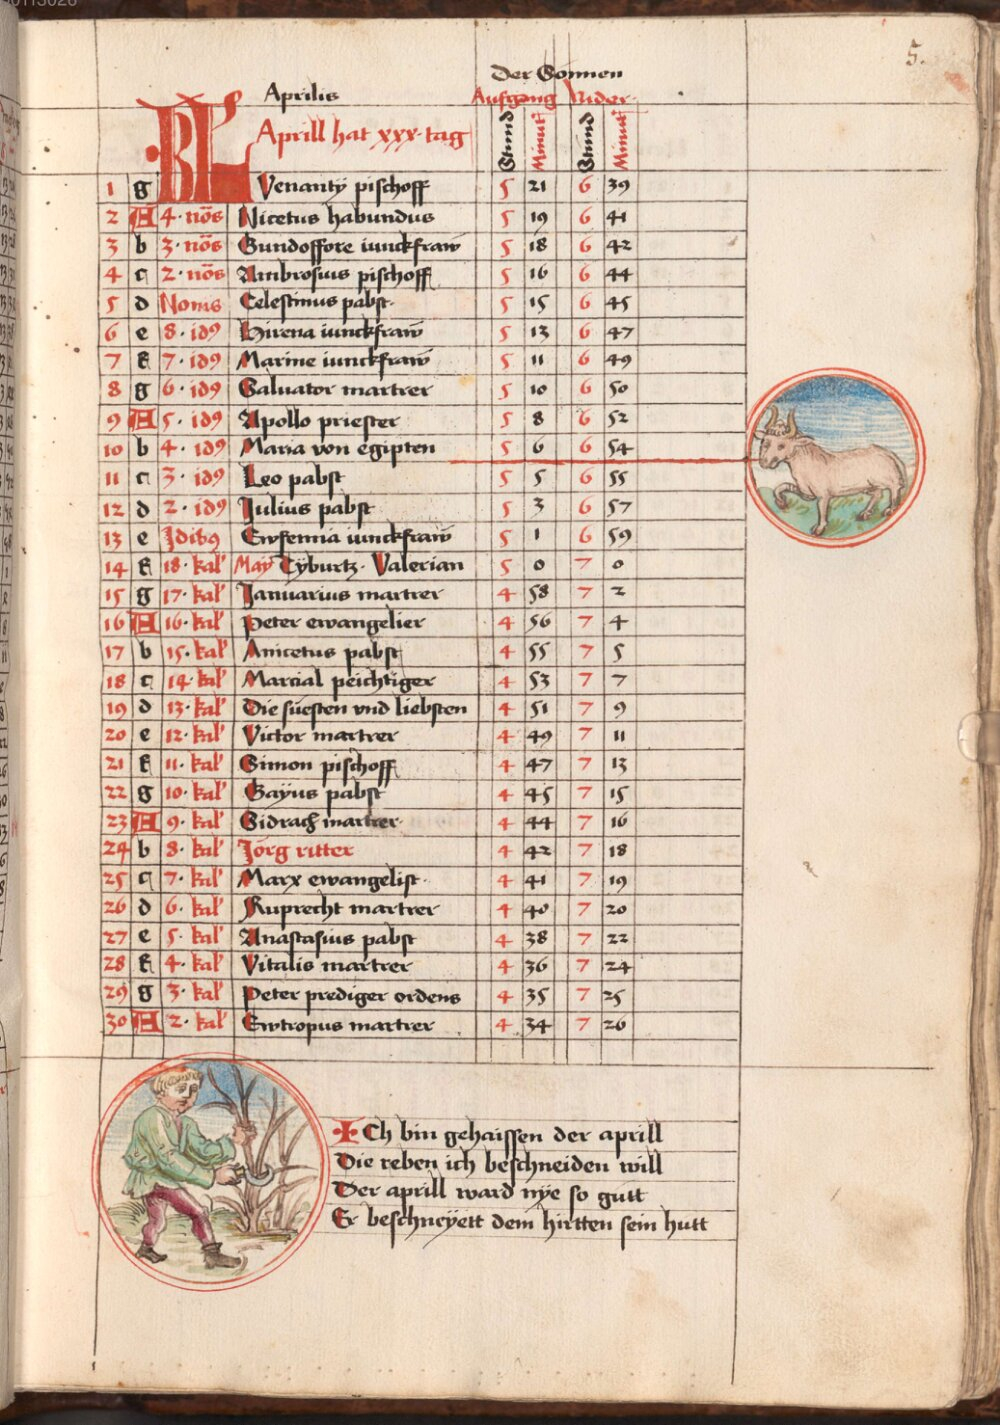 5.
Der Sonnen
Aprilis
Aufgang Nider
KL Aprill hat xxx tag
Stund Minut Stund Minut
1 g Venantÿ pischoff 5 21 6 39
2 A 4 · nōs Nicetus habundus 5 19 6 41
3 b 3 · nōs Gundoffore iunckfraw 5 18 6 42
4 c 2 · nōs Ambrosius pischoff 5 16 6 44
5 d Nonis Celestinus pabst 5 15 6 45
6 e 8 · idꝯ Hirena iunckfraw 5 13 6 47
7 f 7 · idꝯ Marine iunckfraw 5 11 6 49
8 g 6 · idꝯ Saluator martrer 5 10 6 50
9 A 5 · idꝯ Apollo priester 5 8 6 52
10 b 4 · idꝯ Maria von egipten 5 6 6 54
11 c 3 · idꝯ Leo pabst 5 5 6 55
12 d 2 · idꝯ Julius pabst 5 3 6 57
13 e Jdibꝯ Ewfemia iunckfraw 5 1 6 59
14 f 18 · kal' Maÿ Tÿburtz · Valerian 5 0 7 0
15 g 17 · kal' Januarius martrer 4 58 7 2
16 A 16 · kal' Peter ewangelier 4 56 7 4
17 b 15 · kal' Anicetus pabst 4 55 7 5
18 c 14 · kal' Marcial peichtiger 4 53 7 7
19 d 13 · kal' Die süesten vnd liebsten 4 51 7 9
20 e 12 · kal' Victor martrer 4 49 7 11
21 f 11 · kal' Simon pischoff 4 47 7 13
22 g 10 · kal' Gaÿus pabst 4 45 7 15
23 A 9 · kal' Sidrach martrer 4 44 7 16
24 b 8 · kal' Jörg ritter 4 42 7 18
25 c 7 · kal' Marx ewangelist 4 41 7 19
26 d 6 · kal' Ruprecht martrer 4 40 7 20
27 e 5 · kal' Anastasius pabst 4 38 7 22
28 f 4 · kal' Vitalis martrer 4 36 7 24
29 g 3 · kal' Peter prediger ordens 4 35 7 25
30 A 2 · kal' Ewtropus martrer 4 34 7 26
ICh bin gehaissen der aprill
Die reben ich beschneiden will
Der aprill ward nÿe so gutt
Er beschneÿett dem hirtten sein hutt